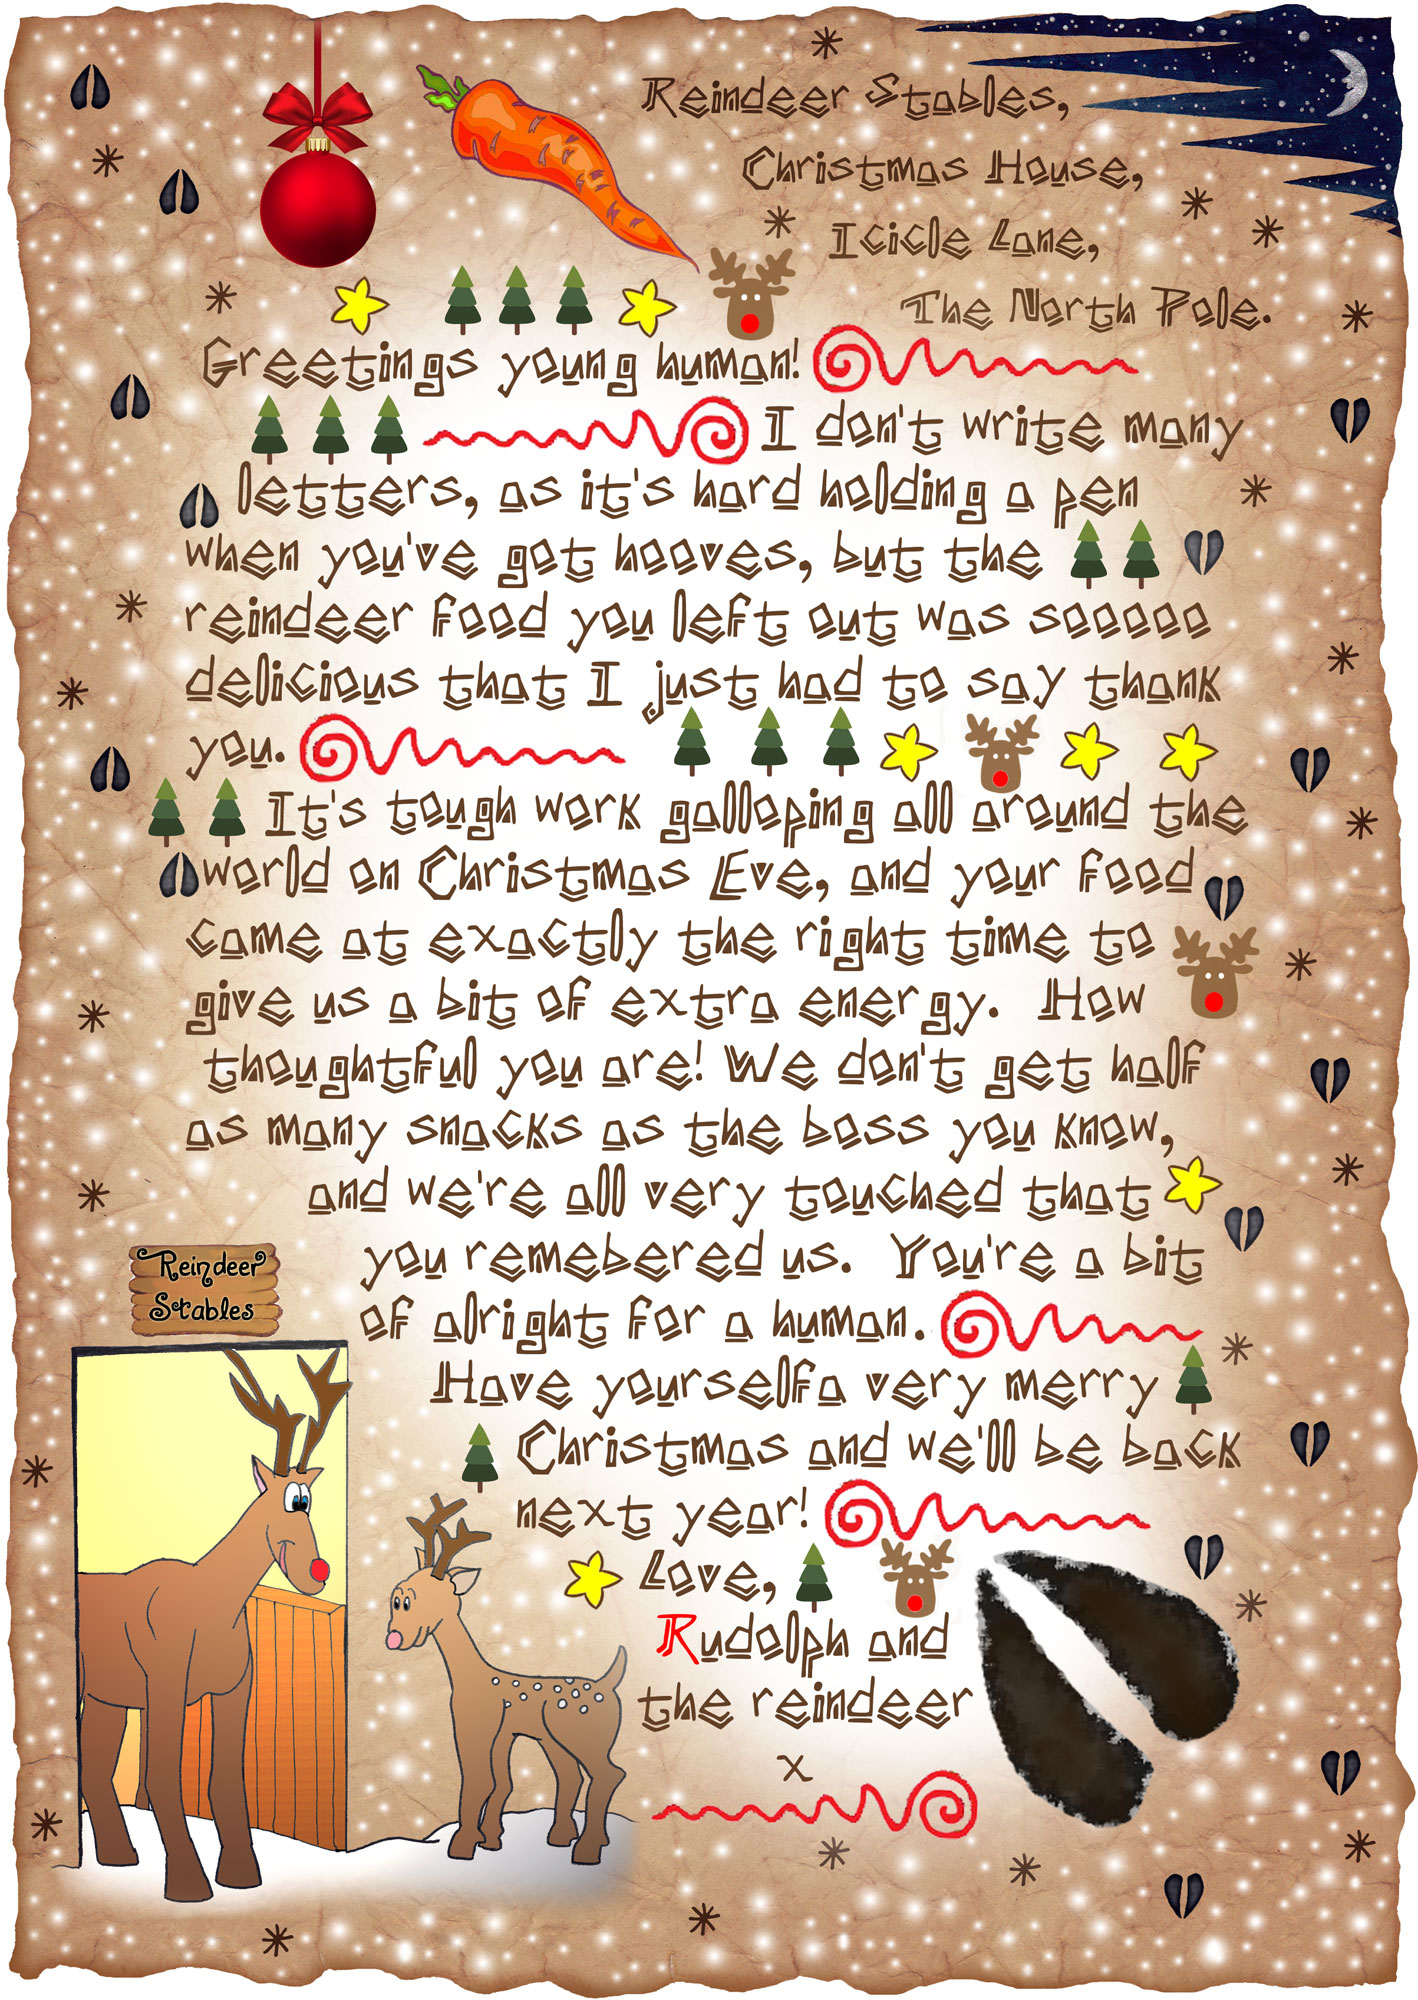 Reindeer Stables,
Christmas House,
Icicle Lane,
The North Pole.
Greetings young human!
I don't write many
letters, as it's hard holding a pen
when you've got hooves, but the
reindeer food you left out was sooooo
delicious that I just had to say thank
you.
It's tough work galloping all around the
world on Christmas Eve, and your food
came at exactly the right time to
give us a bit of extra energy. How
thoughtful you are! We don't get half
as many snacks as the boss you know,
and we're all very touched that
you remebered us. You're a bit
of alright for a human.
Have yourselfa very merry
Christmas and we'll be back
next year!
Love,
Rudolph and
the reindeer
x
Reindeer
Stables